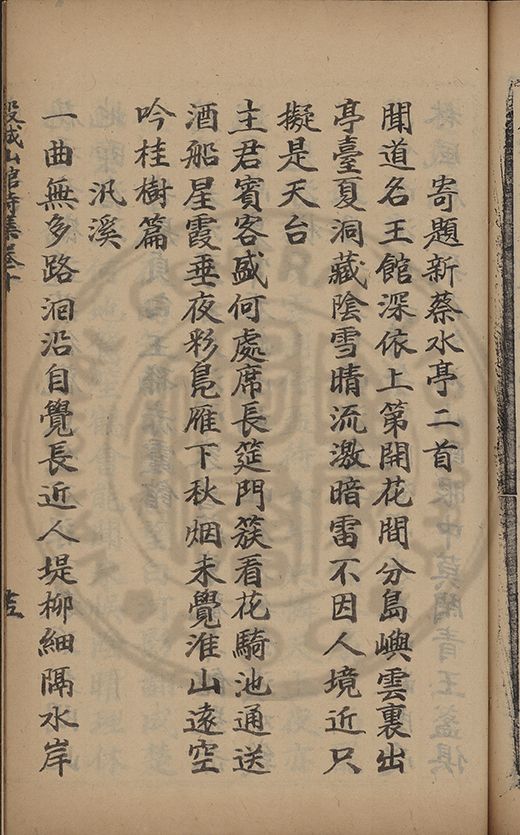 寄題新蔡水亭二首
聞道名王館深依上第開花間分島嶼雲裏出
亭臺夏洞藏陰雪晴流激暗雷不因人境近只
擬是天台
主君賓客盛何處席長筵門簇看花騎池通送
酒船星霞垂夜彩鳬雁下秋烟未覺淮山遠空
吟桂樹篇
汎溪
一曲無多路洄沿自覺長近人堤柳細隔水岸
穀城山館詩集卷十